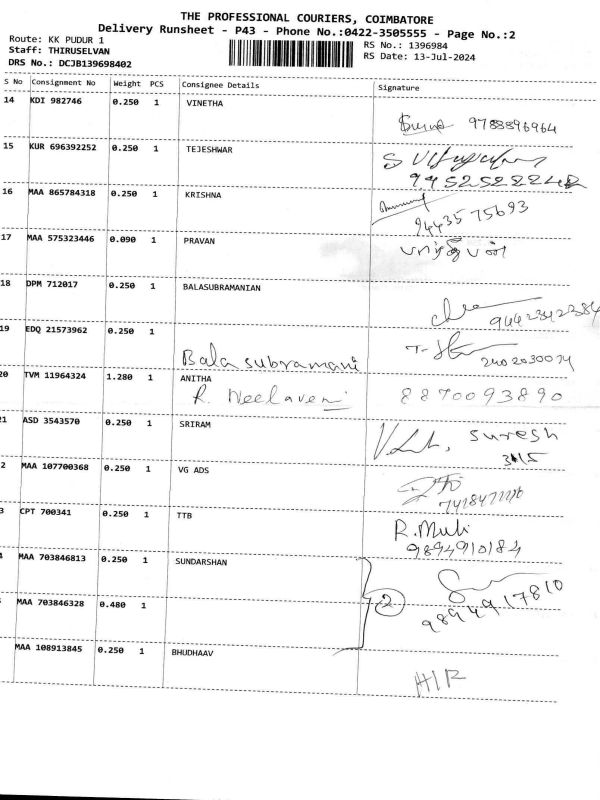 THE PROFESSIONAL COURIERS, COIMBATORE
Delivery Runsheet - P43 - Phone No.:0422-3505555 - Page No.:2
Route: KK PUDUR 1
RS No.: 1396984
Staff: THIRUSELVAN
RS Date: 13-Jul-2024
DRS No.: DCJB139698402
S No Consignment No Weight PCS Consignee Details Signature
14 KDI 982746 0.250 1 VINETHA
9788896964
15 KUR 696392252 0.250 1 TEJESHWAR
16 MAA 865784318 0.250 1 KRISHNA
9443575693
17 MAA 575323446 0.090 1 PRAVAN
பார்த்தீபன்
18 DPM 712017 0.250 1 BALASUBRAMANIAN
9442342384
19 EDQ 21573962 0.250 1
Balasubramani
2402030074
20 TVM 11964324 1.280 1 ANITHA
R. Neelaveni 8870093890
21 ASD 3543570 0.250 1 SRIRAM
Suresh
3415
2 MAA 107700368 0.250 1 VG ADS
3 CPT 700341 0.250 1 TTB
R.Muli
9894910184
4 MAA 703846813 0.250 1 SUNDARSHAN
2
9894917810
MAA 703846328 0.480 1
MAA 108913845 0.250 1 BHUDHAAV
HIR